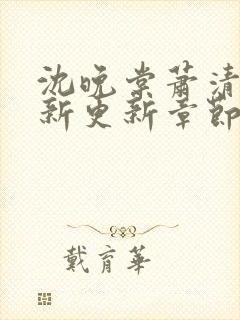 沈晚棠萧清
新更新章節
戴育華